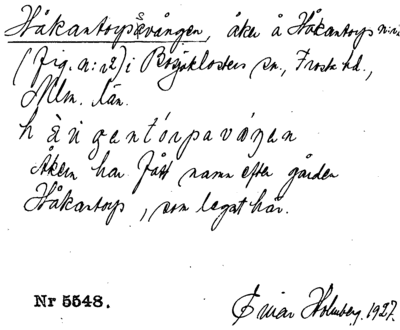 Håkantorpsvången, åker å Håkantorp
(fig. n:r2) i Bosjöklosters sn., Frosta hd.,
Mlm. län.
Åkern har fått namn efter gården
Håkantorp, som legat här.
Nr 5548.
Einar Holmberg. 1927.